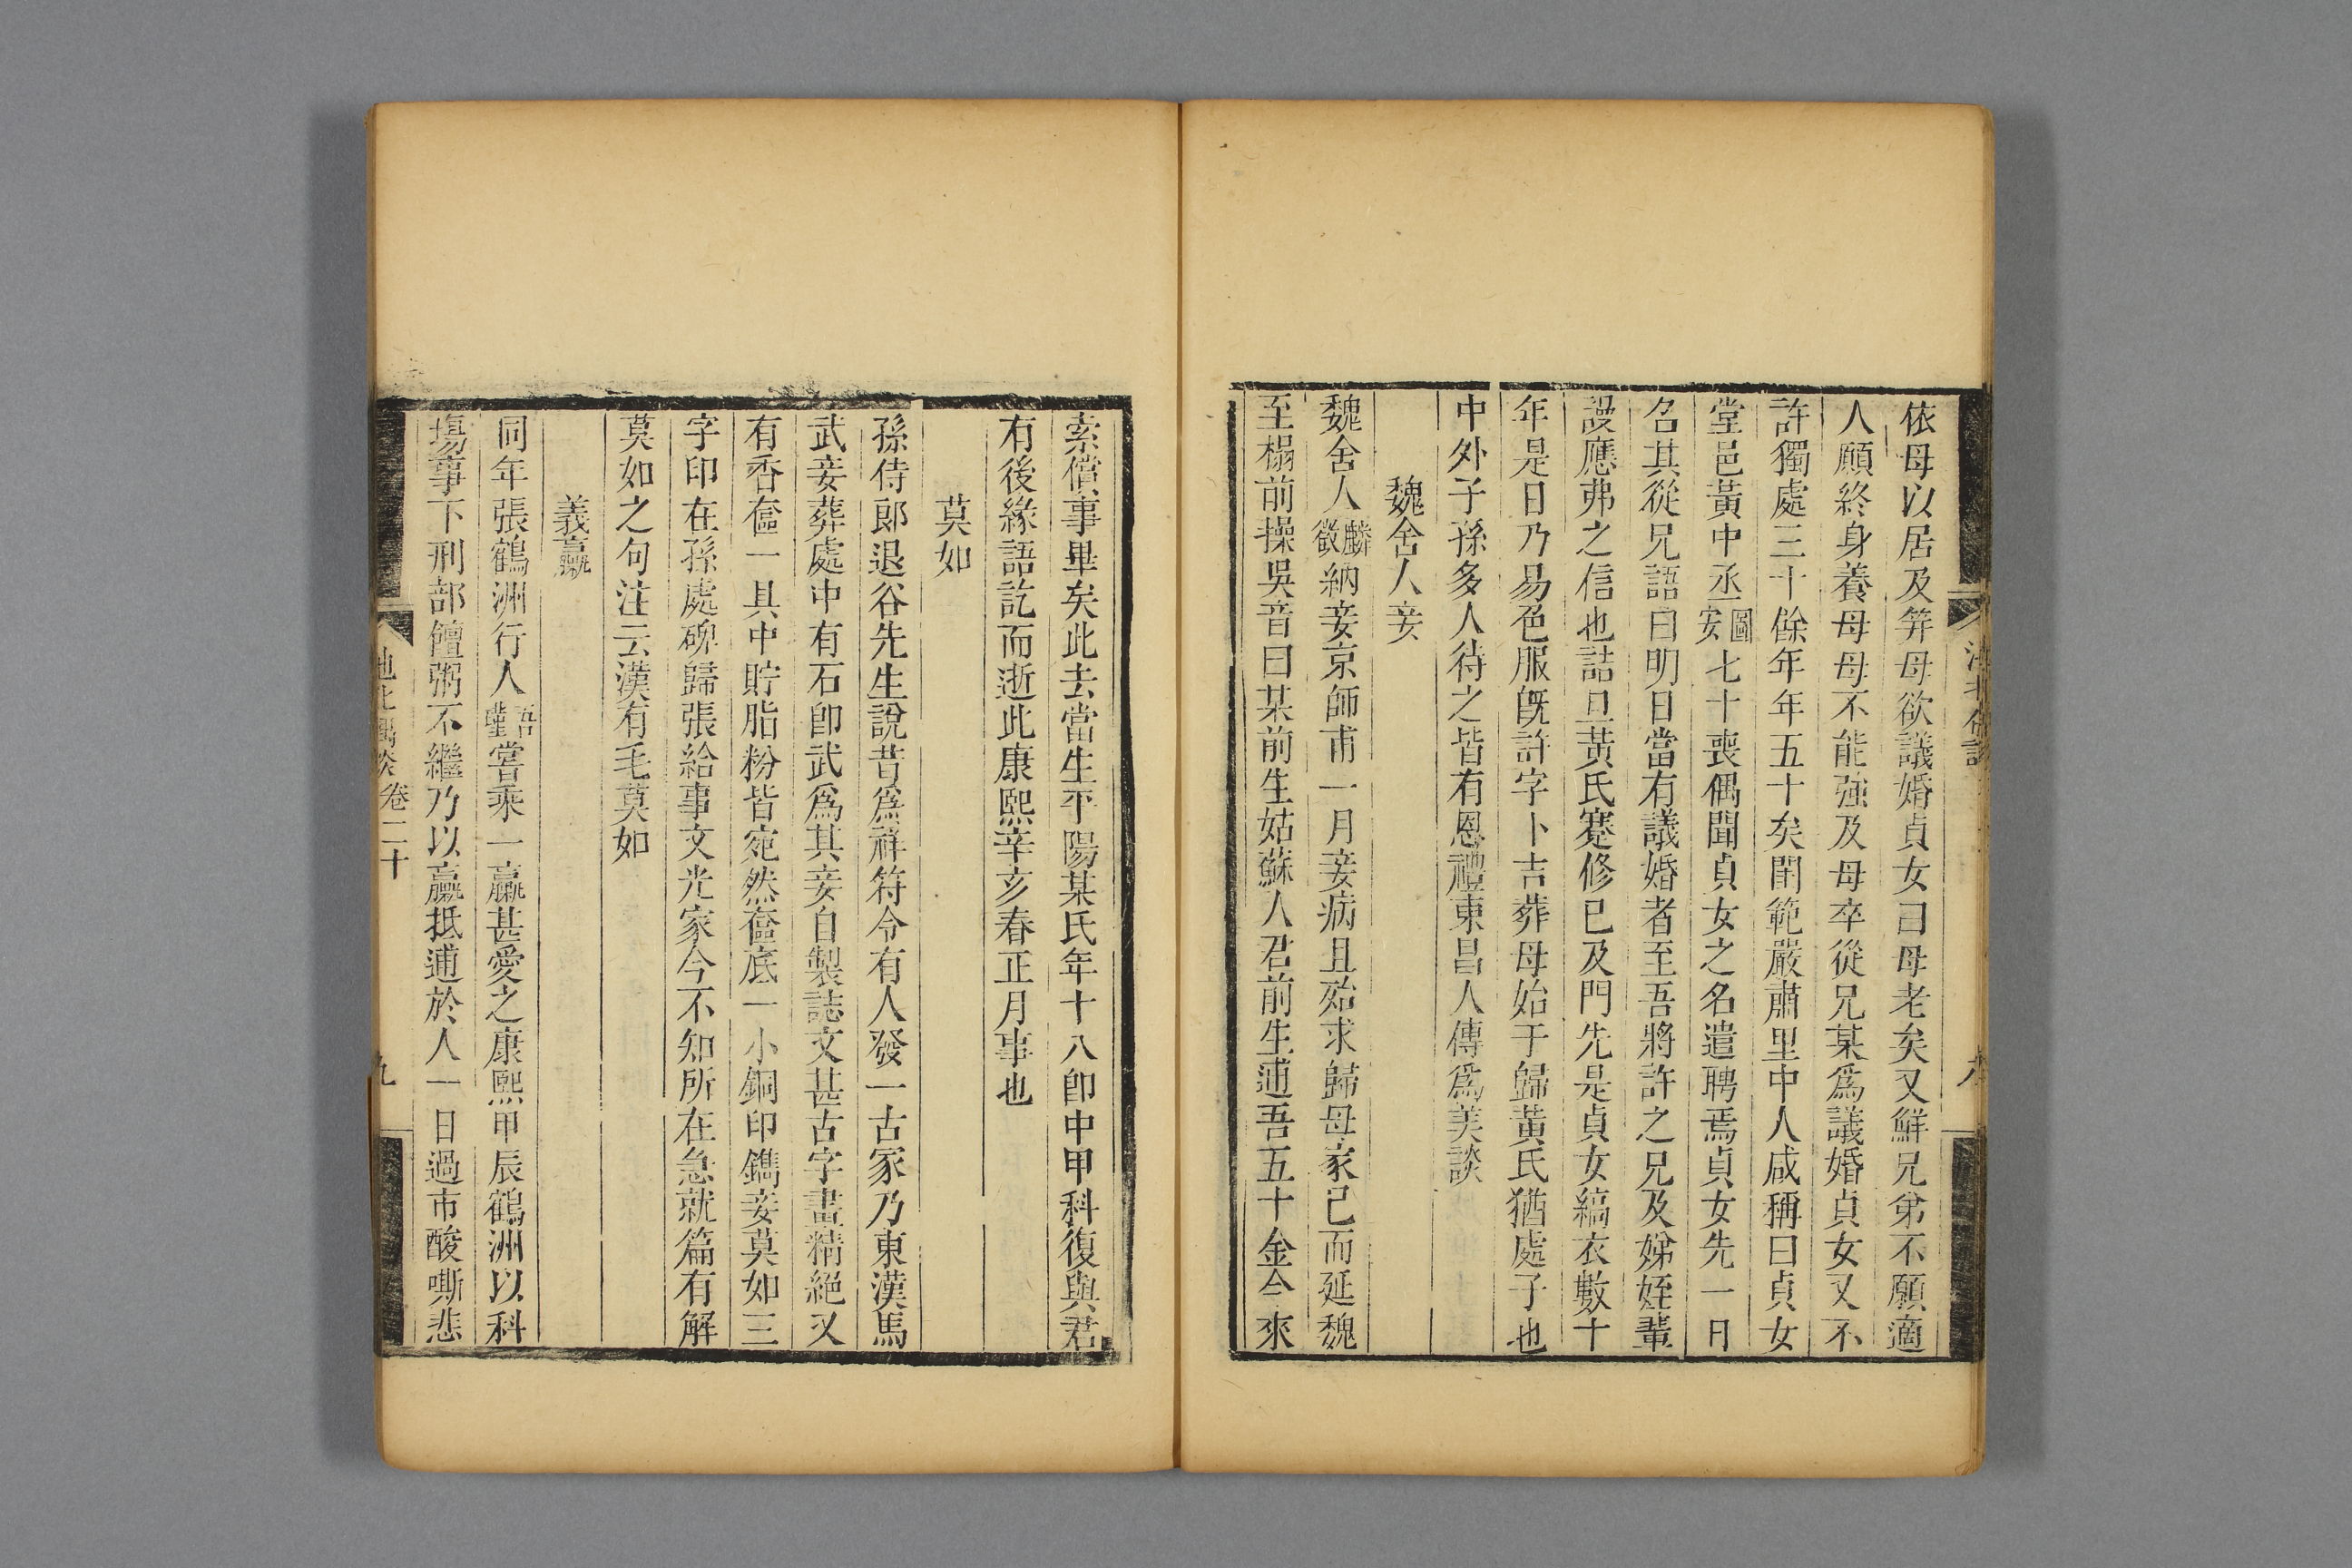 依母以居及筓母欲議婚貞女曰母老矣又鮮兄弟不願適
人願終身養母母不能強及母卒從兄某爲議婚貞女又不
許獨處三十餘年年五十矣閨範嚴肅里中人咸稱曰貞女
堂邑黃中丞圖安七十喪偶聞貞女之名遣聘焉貞女先一日
名其從兄語曰明日當有議婚者至吾將許之兄及娣姪輩
謾應弗之信也詰旦黃氏蹇修已及門先是貞女縞衣數十
年是日乃易色服旣許字卜吉葬母始于歸黃氏猶處子也
中外子孫多人待之皆有恩禮東昌人傳爲美談
魏舍人妾
魏舍人麟徵納妾京師甫一月妾病且殆求歸母家已而延魏
至榻前操吳音曰某前生姑蘇人君前生逋吾五十金今來
索償事畢矣此去當生平陽某氏年十八卽中甲科復與君
有後緣語訖而逝此康熙辛亥春正月事也
莫如
孫侍郎退谷先生說昔爲祥符令有人發一古冢乃東漢馬
武妾葬處中有石卽武爲其妾自製誌文甚古字畫精絕又
有香奩一具中貯脂粉皆宛然奩底一小銅印鐫妾莫如三
字印在孫處碑歸張給事文光家今不知所在急就篇有解
莫如之句注云漢有毛莫如
義驘
同年張鶴洲行人吾瑾嘗乘一驘甚愛之康熙甲辰鶴洲以科
塲事下刑部饘粥不繼乃以驘抵逋於人一日過市酸嘶悲
池北偶談 卷二十 九